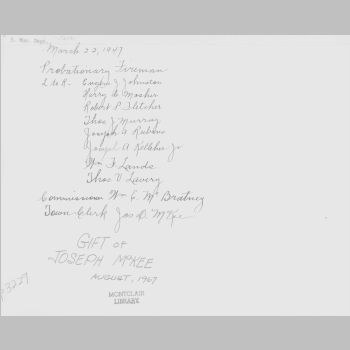 March 22, 1947
Probationary Fireman
L to R - Eugene J Johnston
Harry W Mosher
Robert P. Fletcher
Thos J Murray
Joseph A Rubens
Joseph A Kelleher Jr
Wm F Lands
Thos V Lavery
Commissioner Wm E. McBratney
Town Clerk Jas D. McKee
GIFT OF
JOSEPH McKEE
AUGUST, 1967
MONTCLAIR
LIBRARY